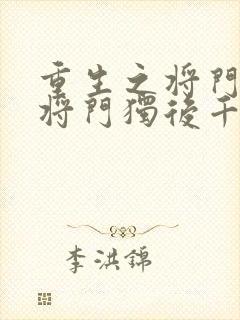 重生之将門
将門獨後千
李洪錦